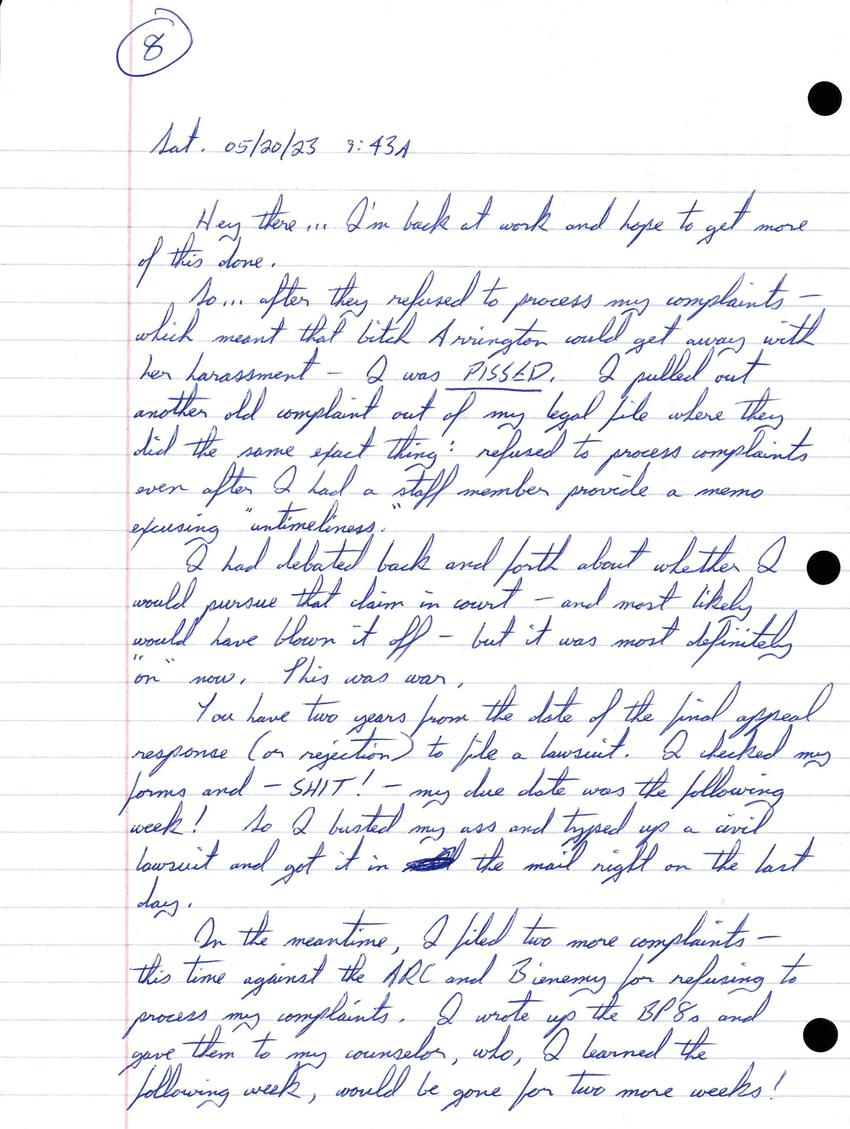 8
Sat. 05/20/23 9:43A
Hey there... I'm back at work and hope to get more
of this done.
So... after they refused to process my complaints —
which meant that bitch Arrington would get away with
her harassment — I was PISSED. I pulled out
another old complaint out of my legal file where they
did the same exact thing: refused to process complaints
even after I had a staff member provide a memo
excusing "untimeliness."
I had debated back and forth about whether I
would pursue that claim in court — and most likely
would have blown it off — but it was most definitely
"on" now. This was war.
You have two years from the date of the final appeal
response (or rejection) to file a lawsuit. I checked my
forms and — SHIT! — my due date was the following
week! So I busted my ass and typed up a civil
lawsuit and got it in the mail right on the last
day.
In the meantime, I filed two more complaints —
this time against the ARC and Bienemy for refusing to
process my complaints. I wrote up the BP8s and
gave them to my counselor, who, I learned the
following week, would be gone for two more weeks!